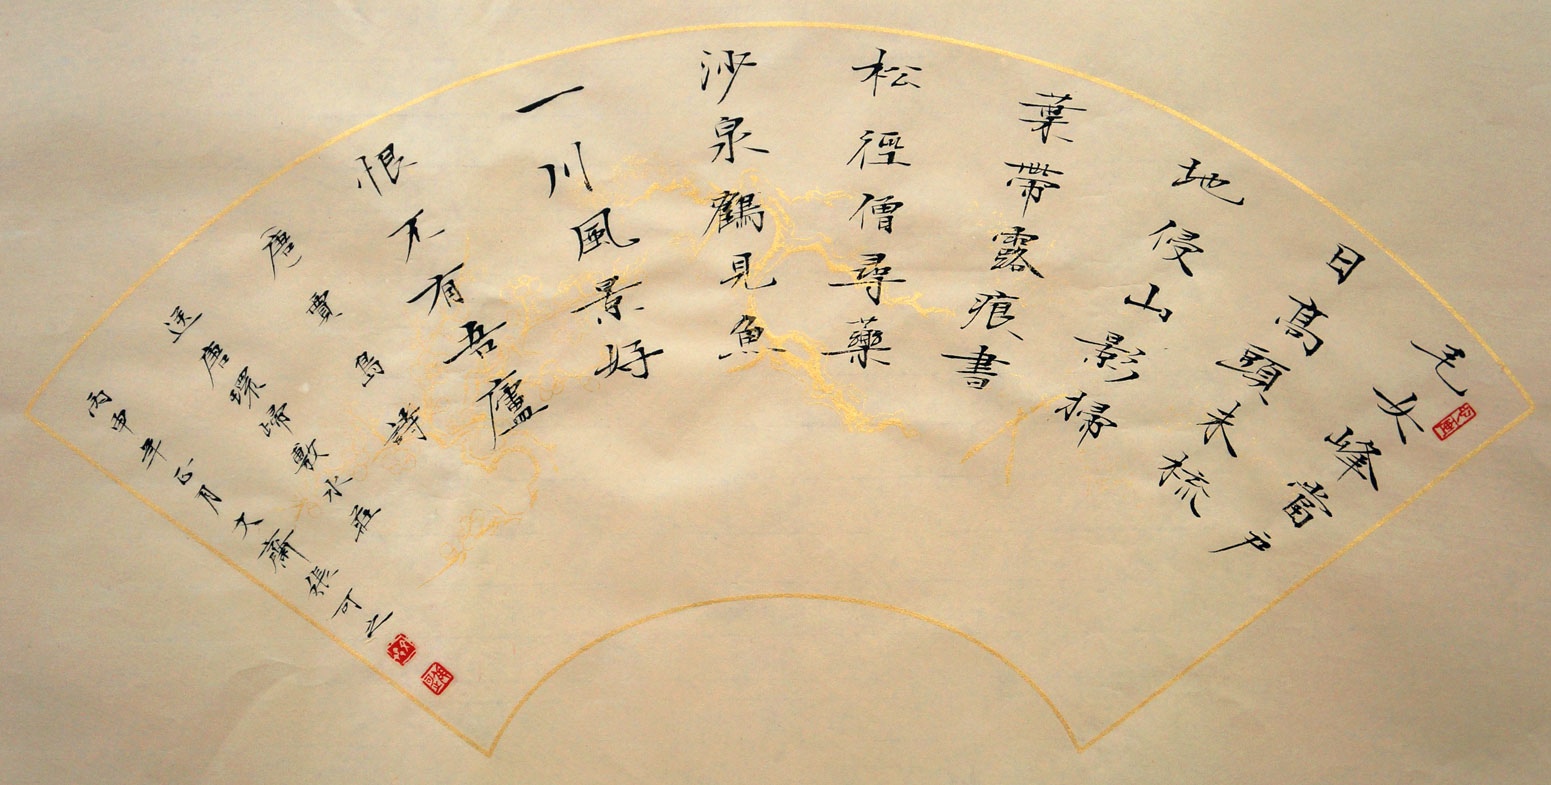 毛女峰當户
日高頭未梳
地侵山影掃
葉帶露痕書
松徑僧尋藥
沙泉鶴見魚
一川風景好
恨不有吾廬
唐賈島詩
送唐環歸敷水莊
丙申年正月大齋張可之